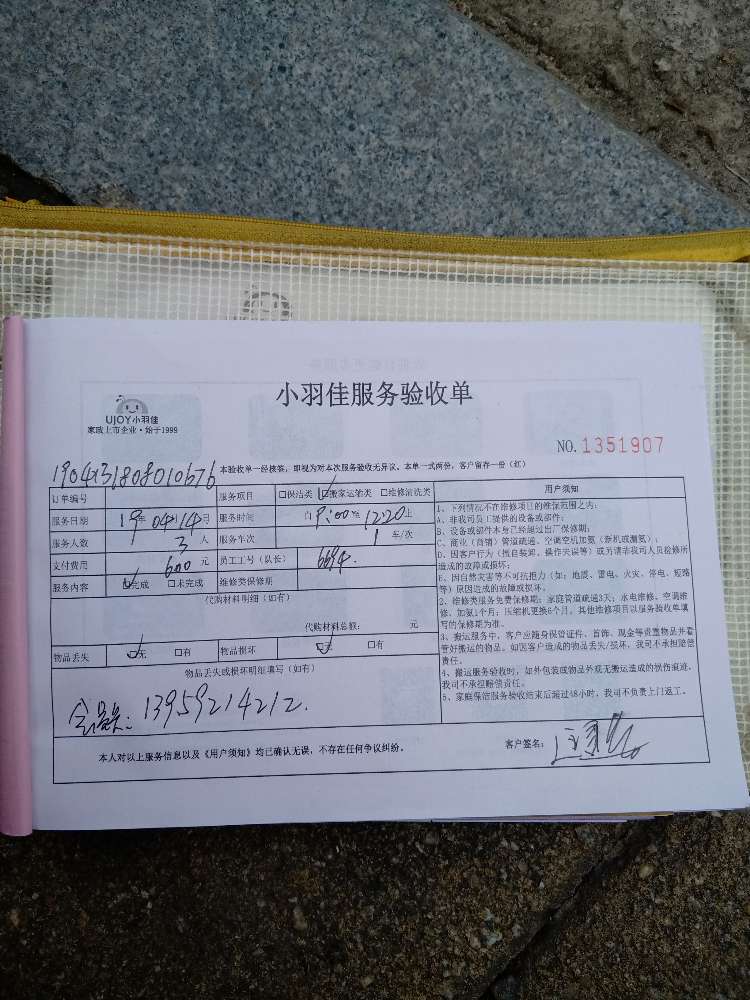 小羽佳服务验收单
UJOY小羽佳
家政上市企业·始于1999
NO.1351907
本验收单一经核签，即视为对本次服务验收无异议。本单一式两份，客户留存一份（红）
订单编号 服务项目 □保洁类 □搬家运输类 □维修清洗类
服务日期 19年04月14日 服务时间 自9:00至12:20止
服务人数 3 人 服务车次 1 车/次
支付费用 600 元 员工工号（队长） 6694.
服务内容 □完成 □未完成 维修类保修期
代购材料明细（如有）
代购材料总额： 元
物品丢失 □无 □有 物品损坏 □无 □有
物品丢失或损坏明细填写（如有）
13959214212.
用户须知
1、下列情况不在维修项目的维保范围之内：
A、非我司员工提供的设备或部件；
B、设备或部件本身已经超过出厂保修期；
C、商业（商铺）管道疏通、空调空机加氨（新机或漏氨）；
D、因客户行为（擅自装卸、操作失误等）或另请非我司人员检修所
造成的故障或损坏；
E、因自然灾害等不可抗拒力（如：地震、雷电、火灾、停电、短路
等）原因造成的故障或损坏。
2、维修类服务免费保修期：家庭管道疏通3天；水电维修、空调维
修、加氨1个月；压缩机更换6个月。其他维修项目以服务验收单填
写的保修期为准。
3、搬运服务中，客户应随身保管证件、首饰、现金等贵重物品并看
管好搬运的物品。如因客户造成的物品丢失/损坏，我司不承担赔偿
责任。
4、搬运服务验收时，如外包装或物品外观无搬运造成的损伤痕迹，
我司不承担赔偿责任。
5、家庭保洁服务验收结束后超过48小时，我司不负责上门返工。
本人对以上服务信息以及《用户须知》均已确认无误，不存在任何争议纠纷。
客户签名：